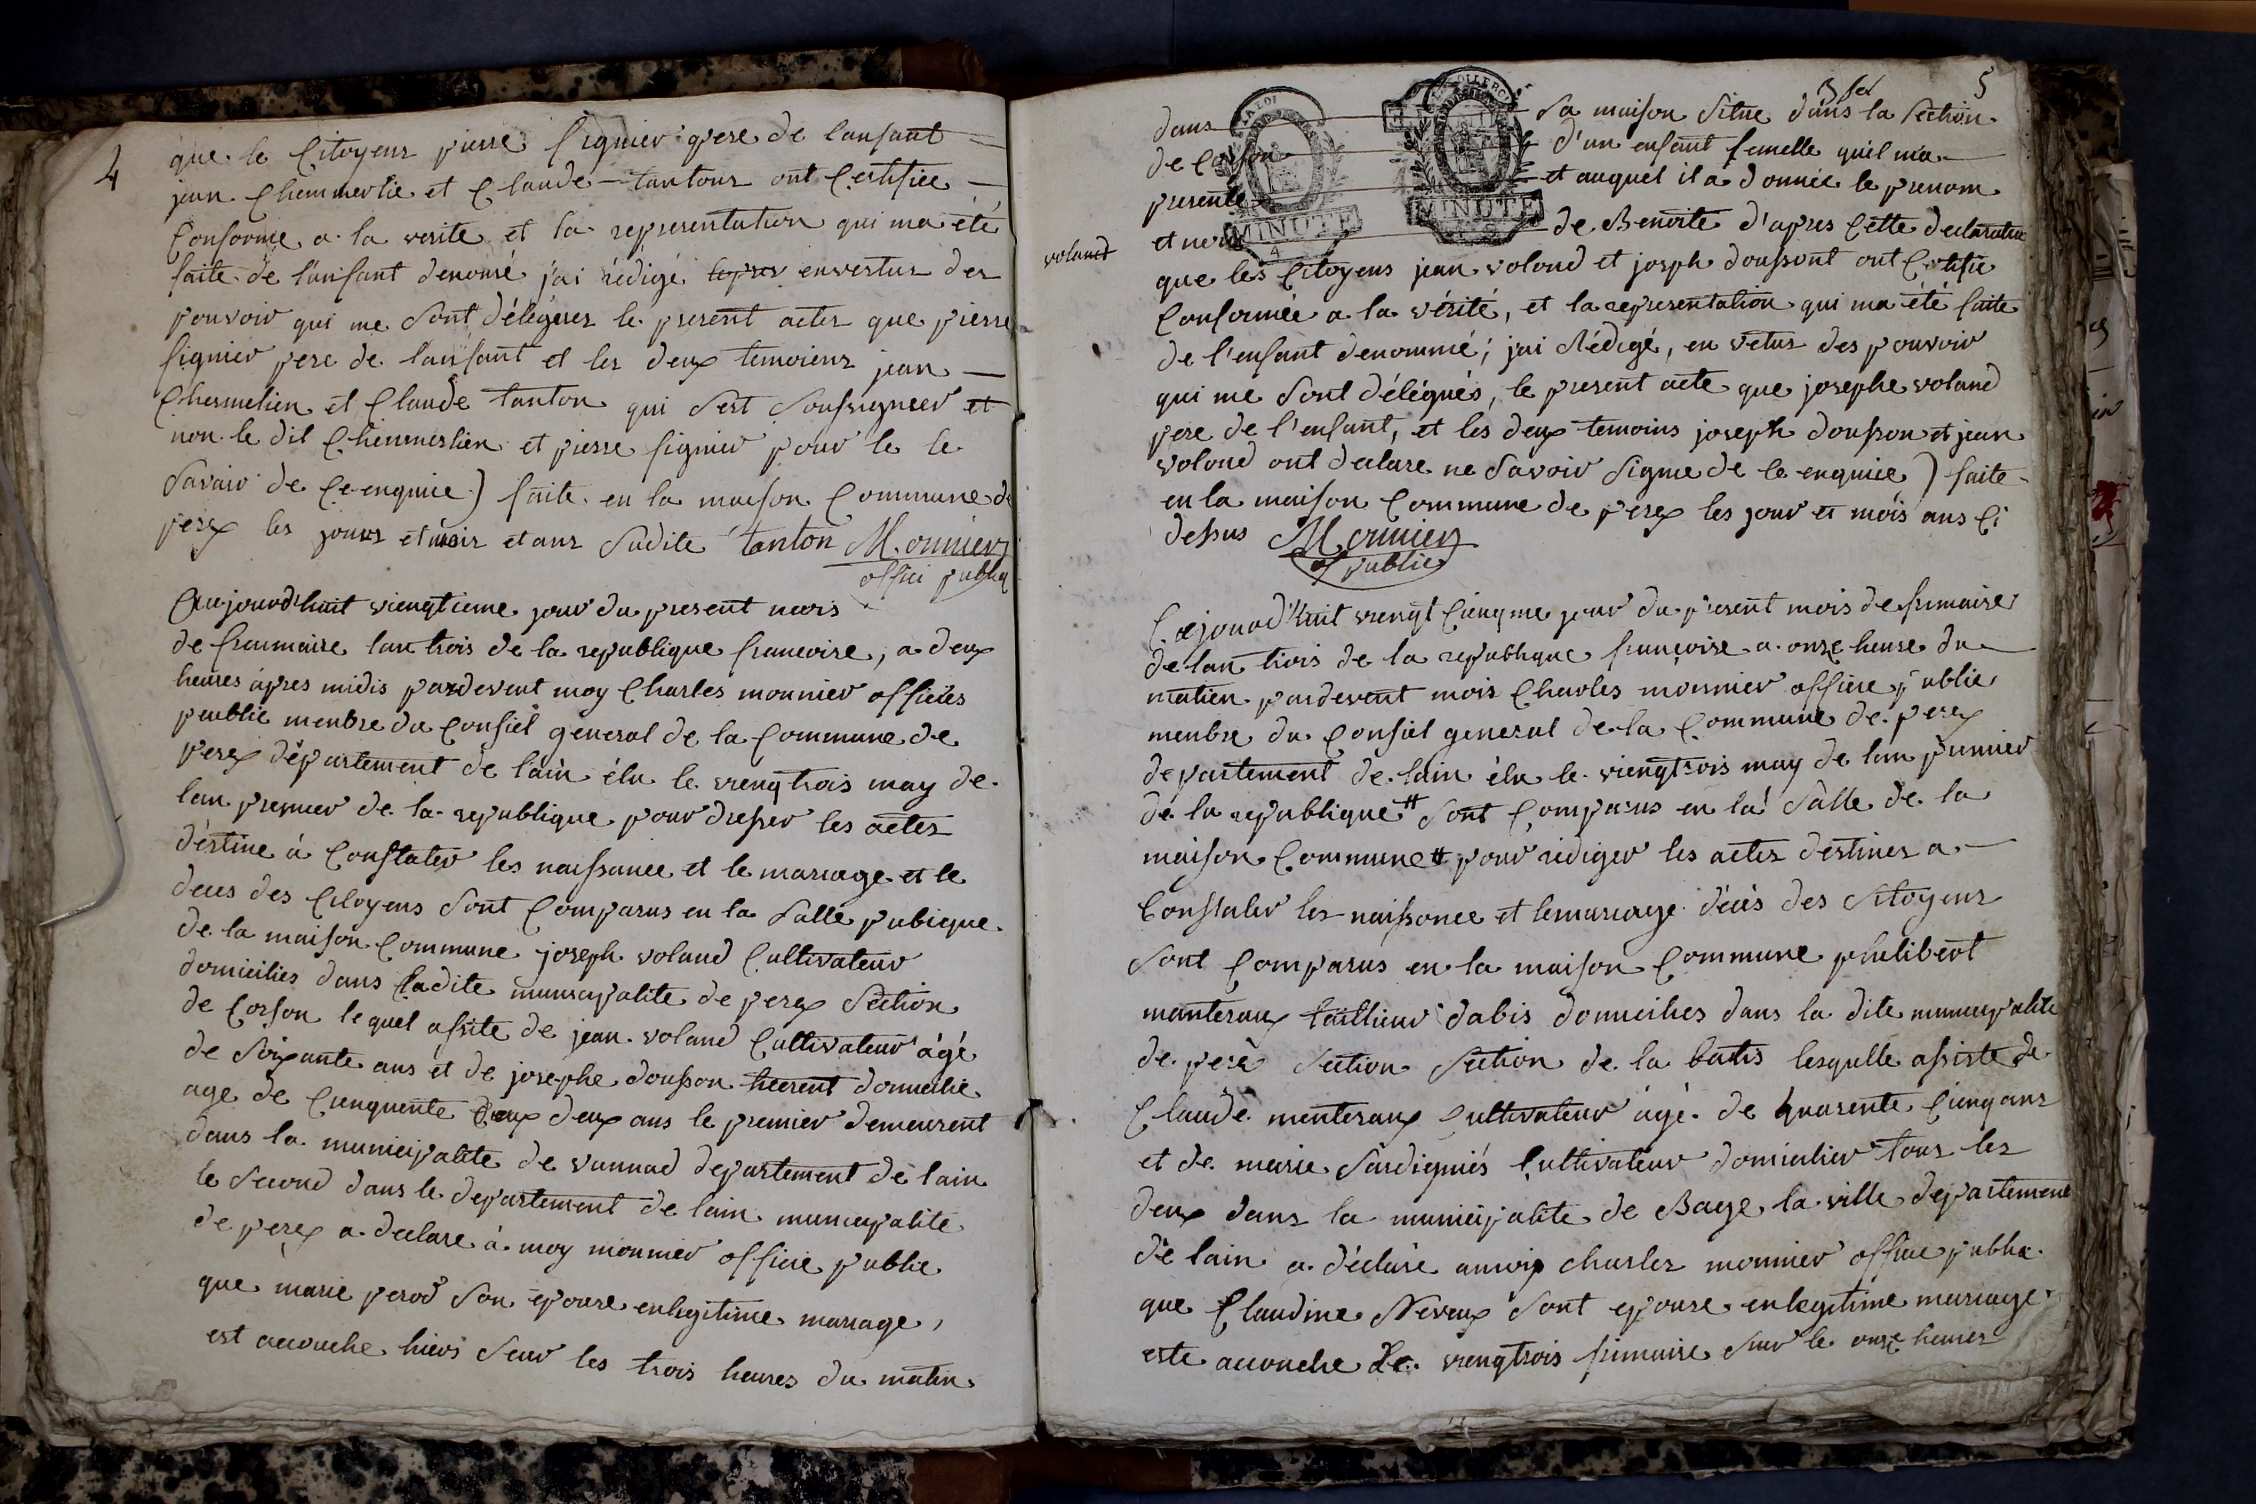 4
que le Citoyens pierre fignier pere de lanfant
jean Chemmertié et Claude tantons ont Certifiee
Conforme a la verité et la representation qui ma été
faite de lanfant denomé j'ai rédigé envertus des
pouvoir qui me Sont déléguees le present actes que pierre
fignier pere de lanfant et les deux temoiens jean
Chermelien et Claude tanton qui Sest Soussigneer et
non le dit Chemmerlien et pierre fignier pour le le
Savair de Ce enquiee) faite en la maeson Commune de
perex les jours et mois et ans Sudite tanton Monnier
offici publiq
Aujourd'huit viengtieme jour du present mois
de freumaire lan trois de la republique francoise, a deux
heures apres midis pardevent moy Charles monnier officiés
peublic menbre du Consiel general de la Commune de
perex département de lain élu le viengtrois may de
lan premier de la republique pour dresser les actes
déstine á Constater les naissance et le mariage et le
deces des Citoyens Sont Comparus en la Salle pubique
de la maison Commune joseph voland Cultivateur
domicilies dans Ladite municipalite de perex Section
de Corson lequel assite de jean voland Cultivateur ágé
de Soixante ans et de josephe dousson domicilie
age de Cenquente deux ans le premier demeurent
dans la municipalite de vannad departement de lain
le Second dans le departement de lain municipalite
de perex a declare á moy monnier officie public
que marie perod Son epouse enlegitime mariage,
est accouche hiers Seur les trois heures du matin
5
dans Sa maison Situe dans la Section
de Corson d'un enfant femelle quil ma
presente et auquel il a donnée le prenom
et nom de Benoite d'apres Cette declaration
voland
MINUTE
MINUTE
que les Citoyens jean voloud et joseph doussont ont Certifie
Conformée a la vérité, et la representation qui ma été faite
de l'enfant denommé; jai Rédigé, en vetus des pouvoir
qui me Sont délégués, le present acte que josephe voland
pere de l'enfant, et les deux temoins joseph dousson et jean
voloud ont declare ne Savoir Signe de Ce enquiee) faite
en la maison Commune de perex les jour et mois ans Ci
dessus Monnier
of public
Cejourd'huit viengt Cienqme jour du present mois de frimaire
de lan trois de la republique françoise a onze heure du
matien pardevent mois Charles monnier officie public
menbre du Consiel general de la Commune de perex
departement de lain élu le viengtrois may de lan premier
de la republique # Sont Comparus en la Salle de la
maison Commune # pour rediger les actes destines a
Constater les naissance et lemariage décés des Sitoyens
Sont Comparus en la maison Commune philibert
manteraux taillieur dabis domicilies dans la dite municipalite
de perex Section Section de la batis lesquelle assiste de
Claude menteraux Cultivateur ágé de quarente Cienq ans
et de marie Sardigniés Cultivateur domicilier tous les
deux dans la municipalite de Bage la ville departement
de lain a déclaré amoix charles monnier officie public
que Claudine Neveux Sont epouse enlegitime mariage
este accouche Le viengtrois frimaire Sur le onze heures